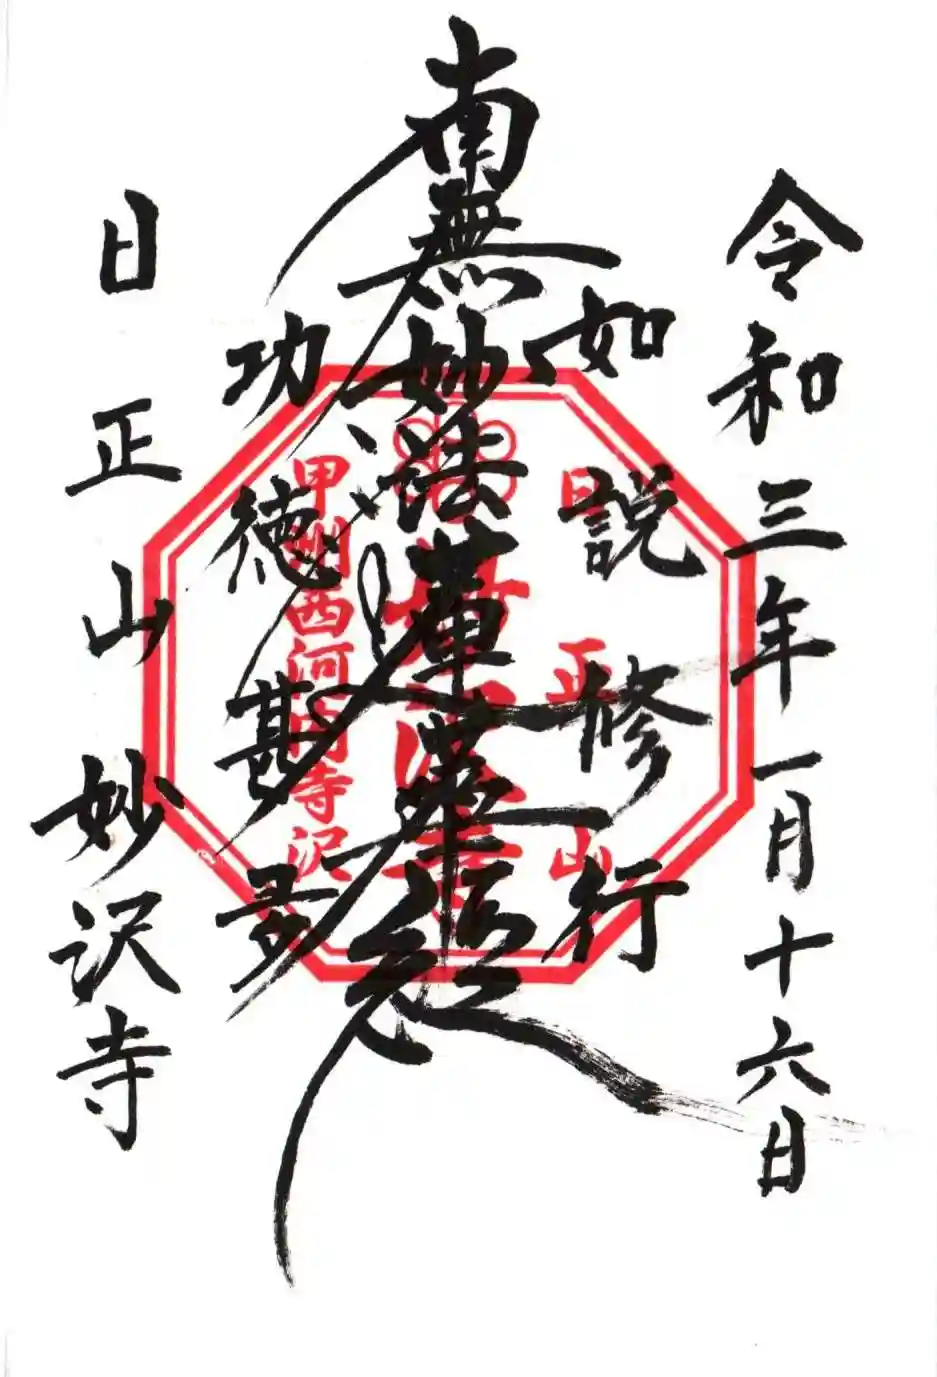 令和三年一月十六日
如説修行
南無妙法蓮華経
功徳甚多
日正山妙沢寺
日正山
妙沢寺
甲州西河内寺沢